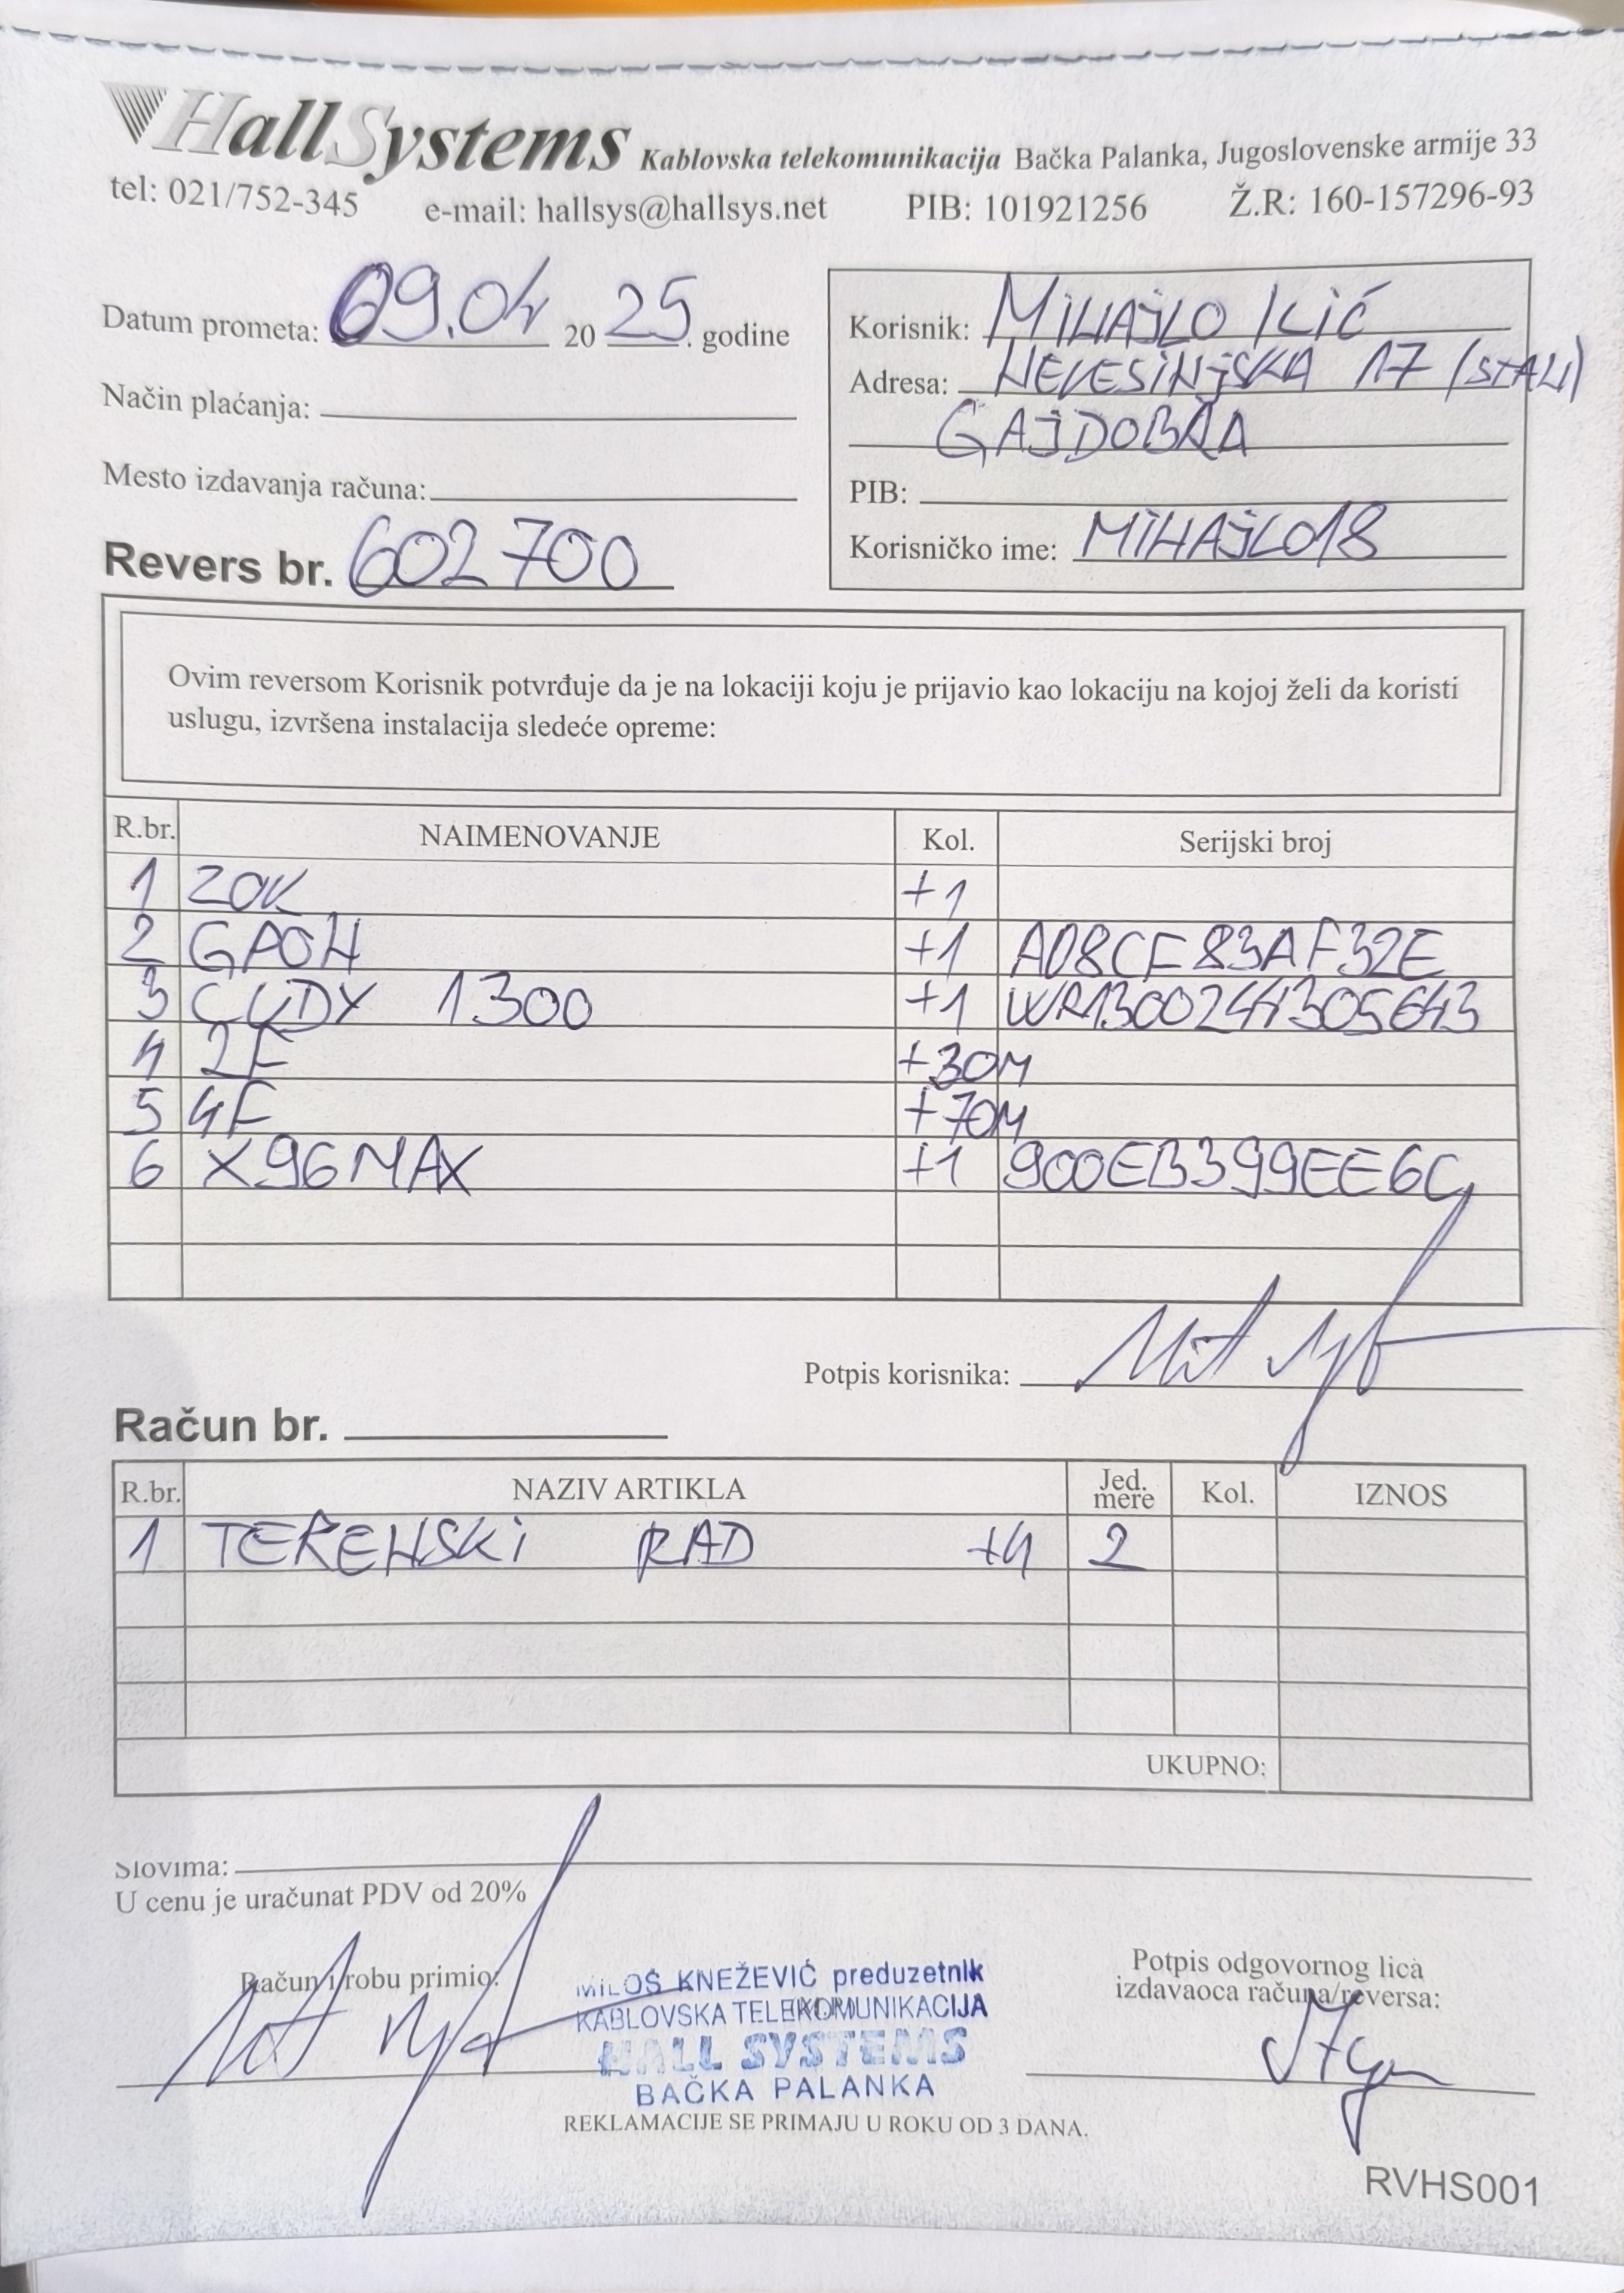 HallSystems Kablovska telekomunikacija Bačka Palanka, Jugoslovenske armije 33
tel: 021/752-345 e-mail: hallsys@hallsys.net PIB: 101921256 Ž.R: 160-157296-93
Datum prometa: 09.04 20 25. godine
Način plaćanja:
Mesto izdavanja računa:
Revers br. 602700
Korisnik: MIHAJLO ILIĆ
Adresa: NEVESINJSKA 17 (STALI)
GAJDOBRA
PIB:
Korisničko ime: MIHAJLO18
Ovim reversom Korisnik potvrđuje da je na lokaciji koju je prijavio kao lokaciju na kojoj želi da koristi
uslugu, izvršena instalacija sledeće opreme:
R.br. NAIMENOVANJE Kol. Serijski broj
1 ZOK +1
2 GPON +1 A08CF83AF32E
3 CUDY 1300 +1 WR13002441305643
4 2F +30M
5 4F +70M
6 X96MAX +1 900EB399EE6C
Potpis korisnika:
Račun br.
R.br. NAZIV ARTIKLA Jed. mere Kol. IZNOS
1 TERENSKI RAD +4 2
UKUPNO:
Slovima:
U cenu je uračunat PDV od 20%
Račun i robu primio:
MILOŠ KNEŽEVIĆ preduzetnik
KABLOVSKA TELEKOMUNIKACIJA
HALL SYSTEMS
BAČKA PALANKA
Potpis odgovornog lica
izdavaoca računa/reversa:
REKLAMACIJE SE PRIMAJU U ROKU OD 3 DANA.
RVHS001